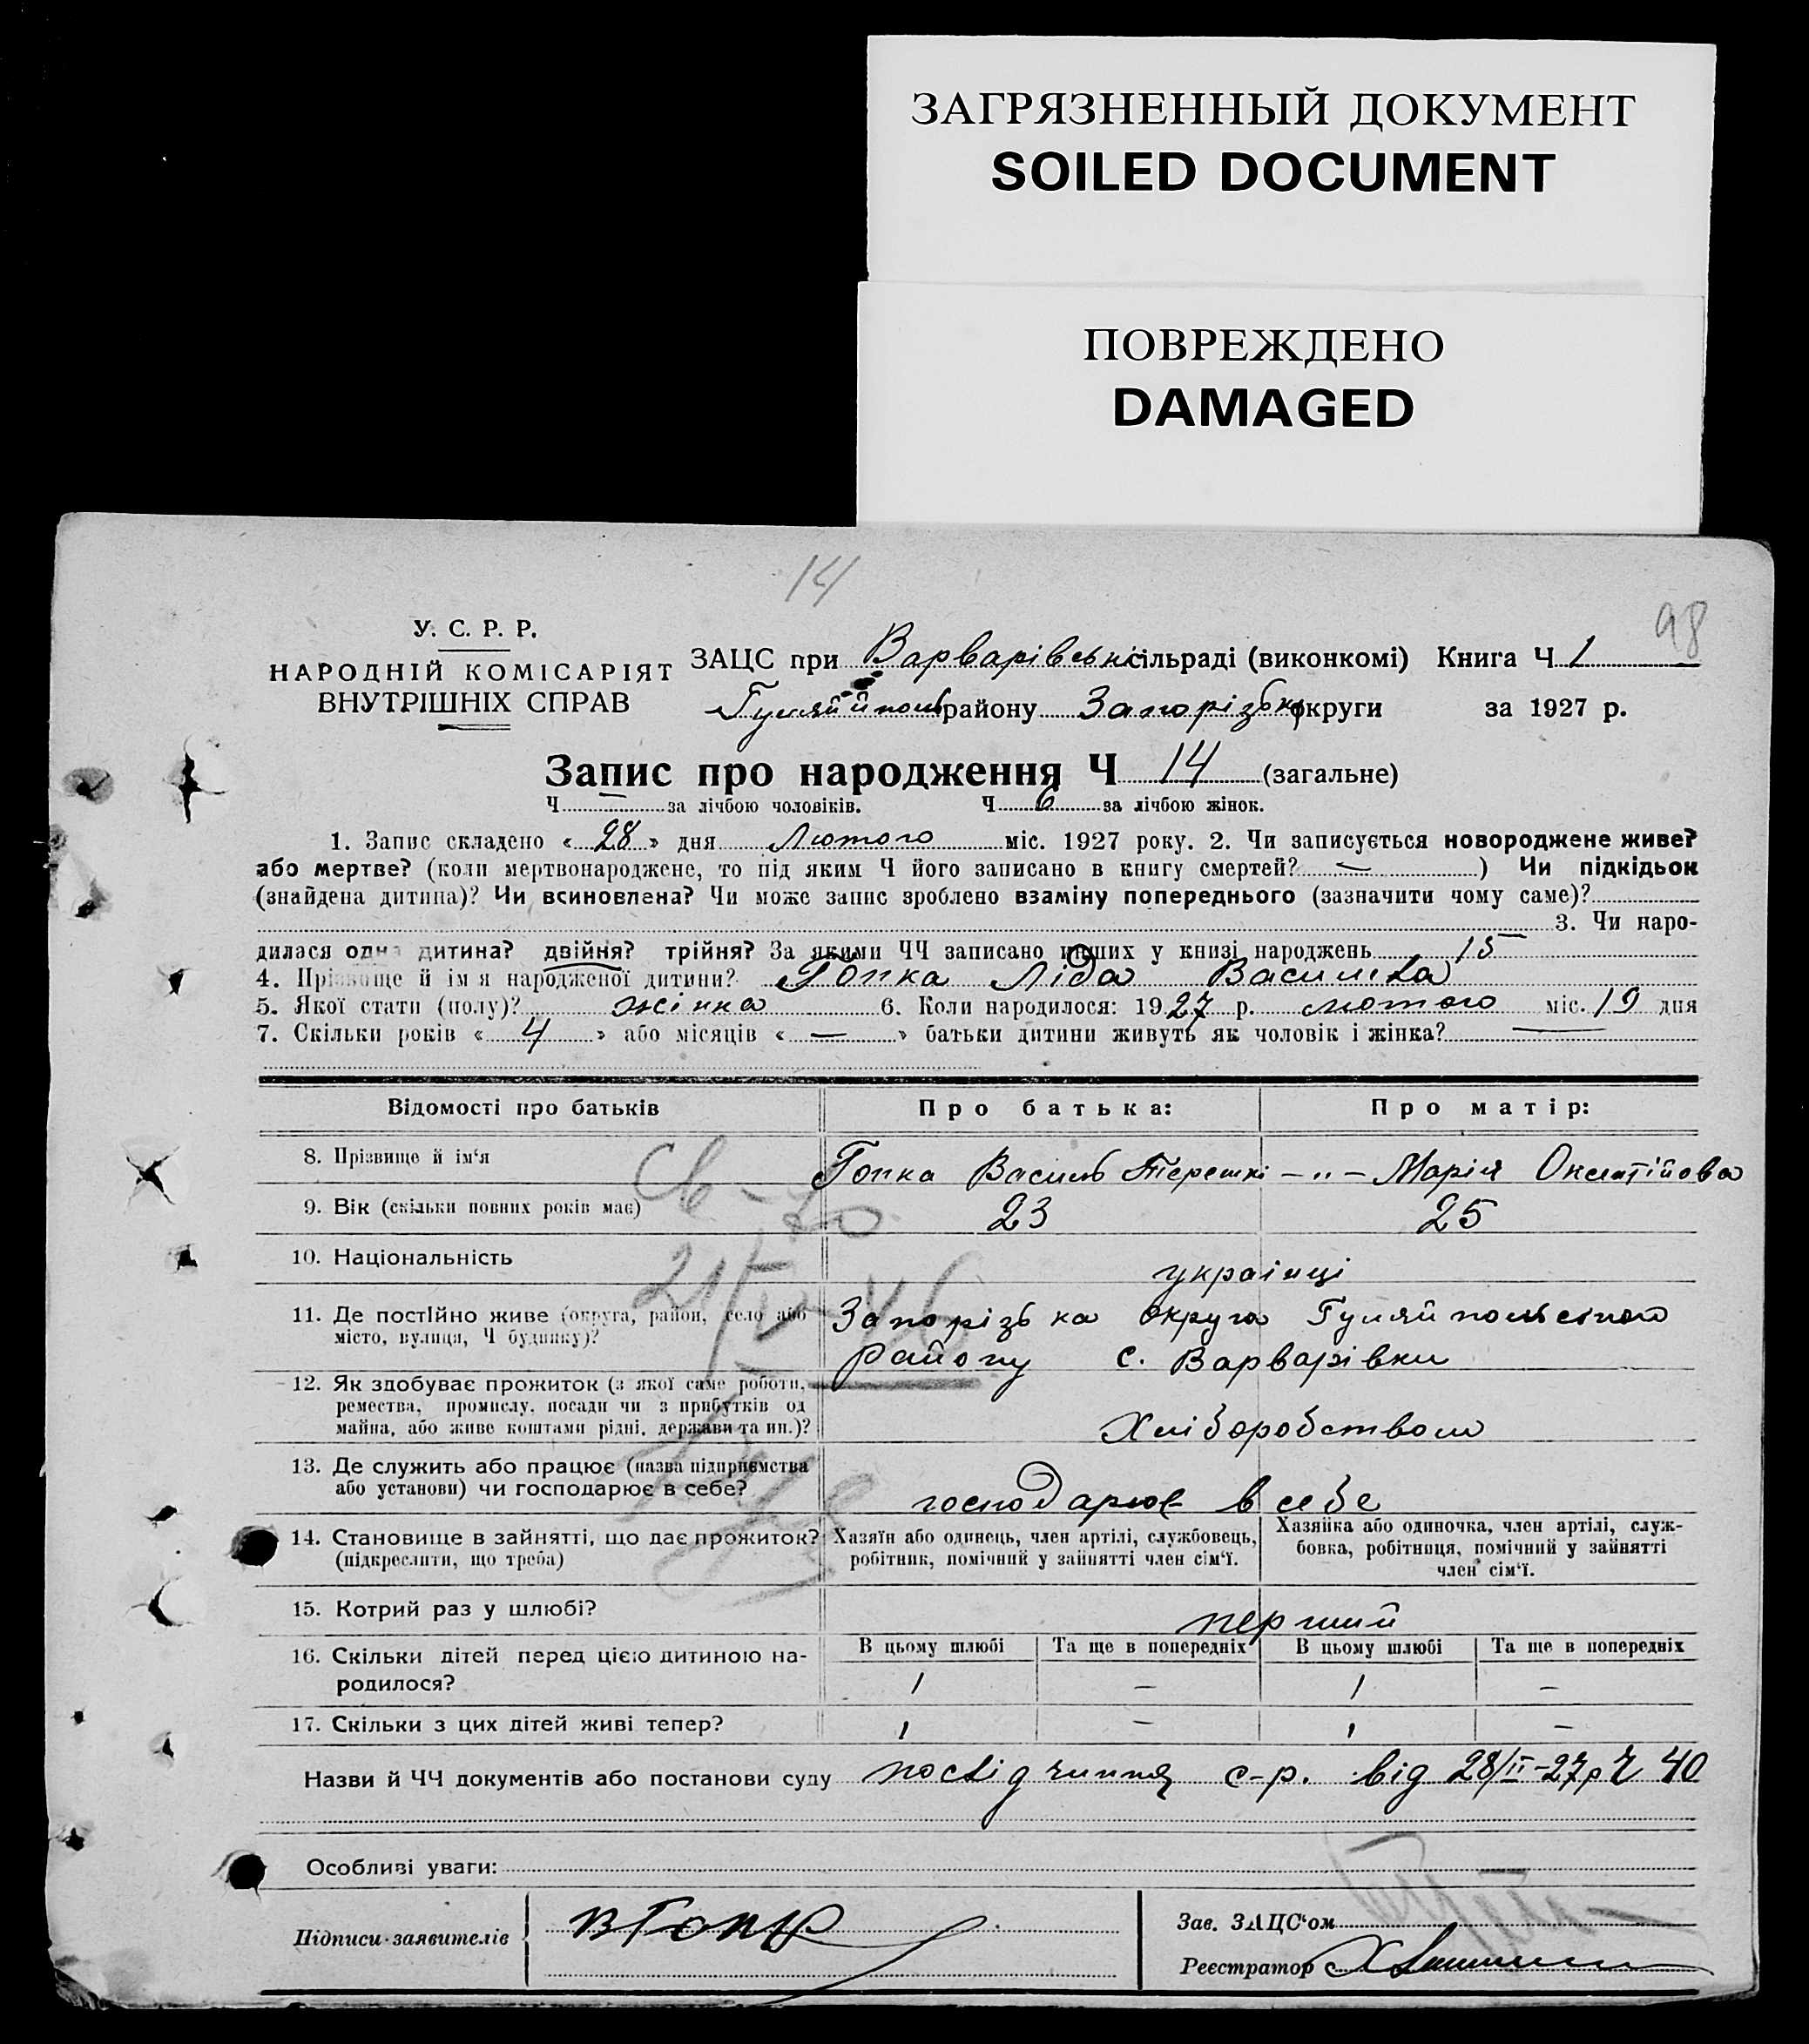 ЗАГРЯЗНЕННЫЙ ДОКУМЕНТ
SOILED DOCUMENT
ПОВРЕЖДЕНО
DAMAGED
14
98
У. С. Р. Р.
НАРОДНІЙ КОМІСАРІЯТ
ВНУТРІШНІХ СПРАВ
ЗАЦС при Варварівській сільраді (виконкомі) Книга Ч 1
Гуляйпольс району Запорізьк округи за 1927 р.
Запис про народження Ч 14 (загальне)
Ч — за лічбою чоловіків. Ч 6 за лічбою жінок.
1. Запис складено « 28 » дня Лютого міс. 1927 року. 2. Чи записується новороджене живе?
або мертве? (коли мертвонароджене, то під яким Ч його записано в книгу смертей? — ) Чи підкідьок
(знайдена дитина)? Чи всиновлена? Чи може запис зроблено взаміну попереднього (зазначити чому саме)?
3. Чи наро-
дилася одна дитина? двійня? трійня? За якими ЧЧ записано инших у книзі народжень 15
4. Прізвище й ім'я народженої дитини? Гопка Ліда Василева
5. Якої стати (полу)? жінка 6. Коли народилося: 1927 р. лютого міс. 19 дня
7. Скільки років « 4 » або місяців « — » батьки дитини живуть як чоловік і жінка? —
Відомості про батьків Про батька: Про матір:
8. Прізвище й ім'я Гопка Василь Терешкі — „ — Марія
9. Вік (скільки повних років має) 23 25
10. Національність українці
11. Де постійно живе (округа, район, село або Запорізька округа Гуляйпольского
місто, вулиця, Ч будинку)? району с. Варварівки
12. Як здобуває прожиток (з якої саме роботи,
ремества, промислу, посади чи з прибутків од
майна, або живе коштами рідні, держави та ин.)? Хліборобством
13. Де служить або працює (назва підприємства
або установи) чи господарює в себе? господарює в себе
14. Становище в зайнятті, що дає прожиток? Хазяїн або одинець, член артілі, службовець, Хазяйка або одиночка, член артілі, служ-
(підкреслити, що треба) робітник, помічний у зайнятті член сім'ї. бовка, робітниця, помічний у зайнятті
член сім'ї.
15. Котрий раз у шлюбі? перший
В цьому шлюбі Та ще в попередніх В цьому шлюбі Та ще в попередніх
16. Скільки дітей перед цією дитиною на-
родилося? 1 — 1 —
17. Скільки з цих дітей живі тепер? 1 — 1 —
Назви й ЧЧ документів або постанови суду посвідчиння с-р. від 28/II-27р Ч 40
Особливі уваги:
Підписи заявителів Зав. ЗАЦС'ом
Реєстратор